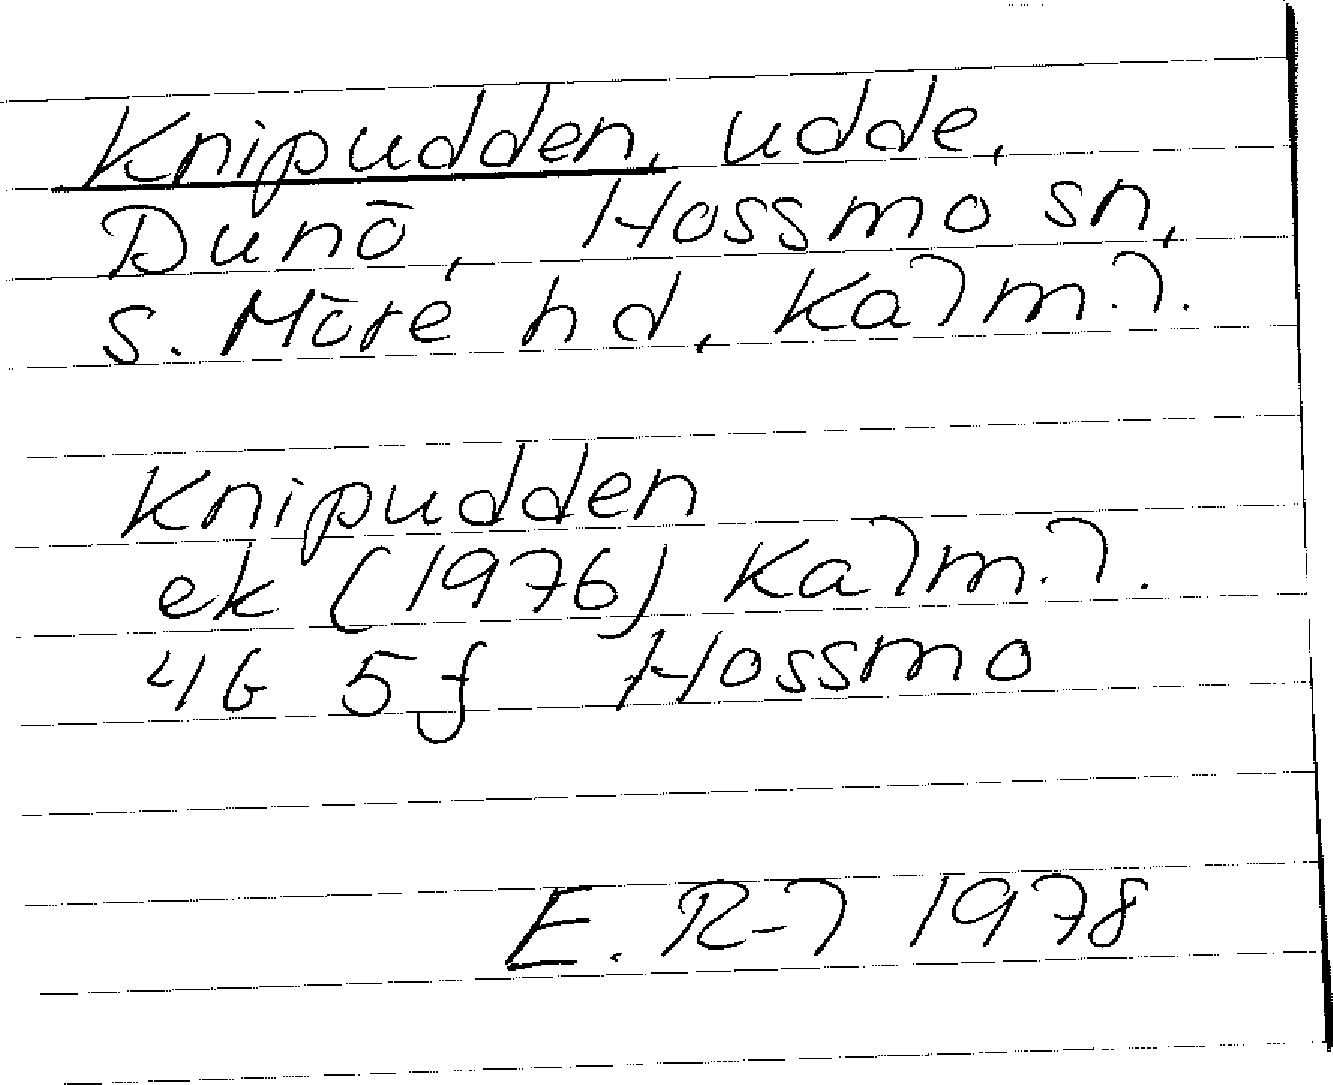 Knipudden, udde,
Dunö, Hossmo sn,
S. Möre hd, Kalm. l.
Knipudden
ek (1976) Kalm. l.
4G 5f Hossmo
E. R-l 1978